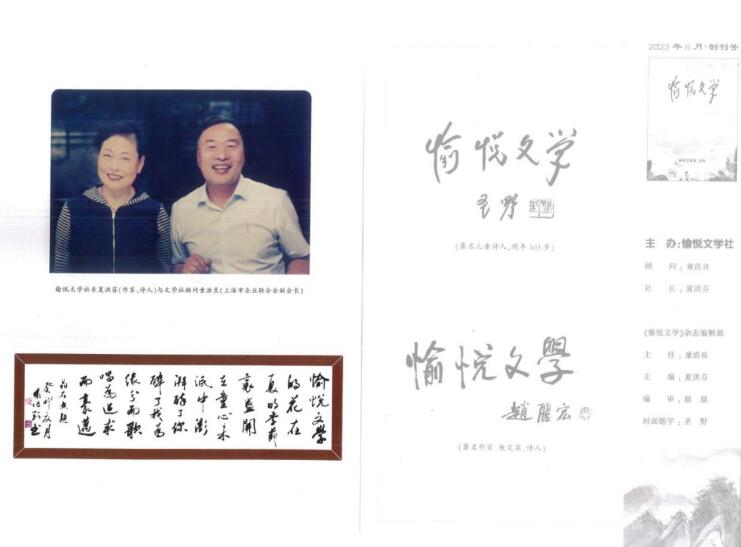 愉悦文学社长夏洪芬(作家、诗人)与文学社顾问童浩良(上海市企业联合会副会长)
愉悦文學
的花在
夏的季節
裏盛開
在童心未
泯中澎
湃醉了你
醉了我為
緣分而歌
唱為追求
而豪邁
癸卯夏月
愉悦文学
圣野
(著名儿童诗人,现年103岁)
愉悦文學
趙麗宏
(著名作家 散文家、诗人)
2023年6月·创刊号
愉悦文学
主 办:愉悦文学社
顾 问:童浩良
社 长:夏洪芬
《愉悦文学》杂志编辑部
主 任:童浩良
主 编:夏洪芬
编 审:
封面题字:圣 野